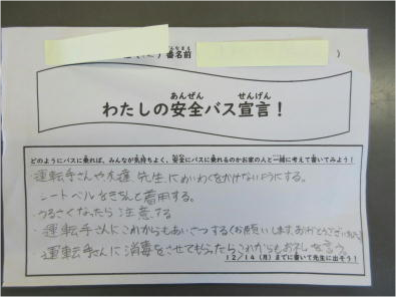 番名前 )
わたしの安全バス宣言！
どのようにバスに乗れば、みんなが気持ちよく、安全にバスに乗れるのかお家の人と一緒に考えて書いてみよう！
・運転手さんや友達、先生にめいわくをかけないようにする。
・シートベルトをきちんと着用する。
・うるさくなったら注意する
・運転手さんにこれからもあいさつする(お願いします、ありがとうございました)
・運転手さんに消毒をさせてもらったらこれからもお礼を言う。
12/14（月）までに書いて先生に出そう！